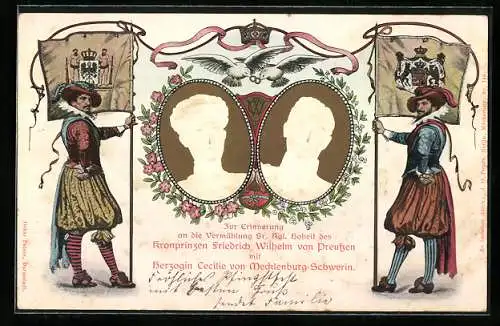 Zur Erinnerung
an die Vermählung Sr. Kgl. Hoheit des
Kronprinzen Friedrich Wilhelm von Preußen
mit
Herzogin Cecilie von Mecklenburg-Schwerin.
Fröhliches Pfingstfest
mit besten Gruß
sendet Familie